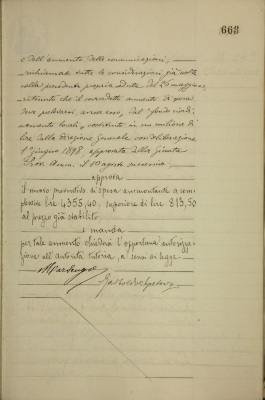 668
e dell'aumento delle comunicazioni;
richiamate tutte le considerazioni già svolte
nella precedente propria seduta del 26 maggio
ritenuto che il suddetto aumento di spesa
deve prelevarsi, anch'esso, dal "fondo
locali, costituito in un milione di
lire dalla Direzione Generale con deliberazione
1° giugno 1898, approvata dalla Giunta
Prov. Amm. il 10 agosto successivo;
approva
il nuovo preventivo di spesa ammontante a com-
plessive lire 4355,40, superiore di lire 813,50
al prezzo già stabilito,
e manda
per tale aumento chiedersi l'opportuna autorizza-
zione all'autorità tutoria, a sensi di legge.